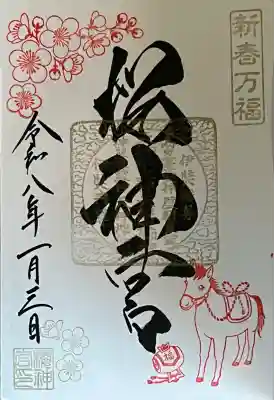 新春万福
桜神宮
令和八年一月三日
福